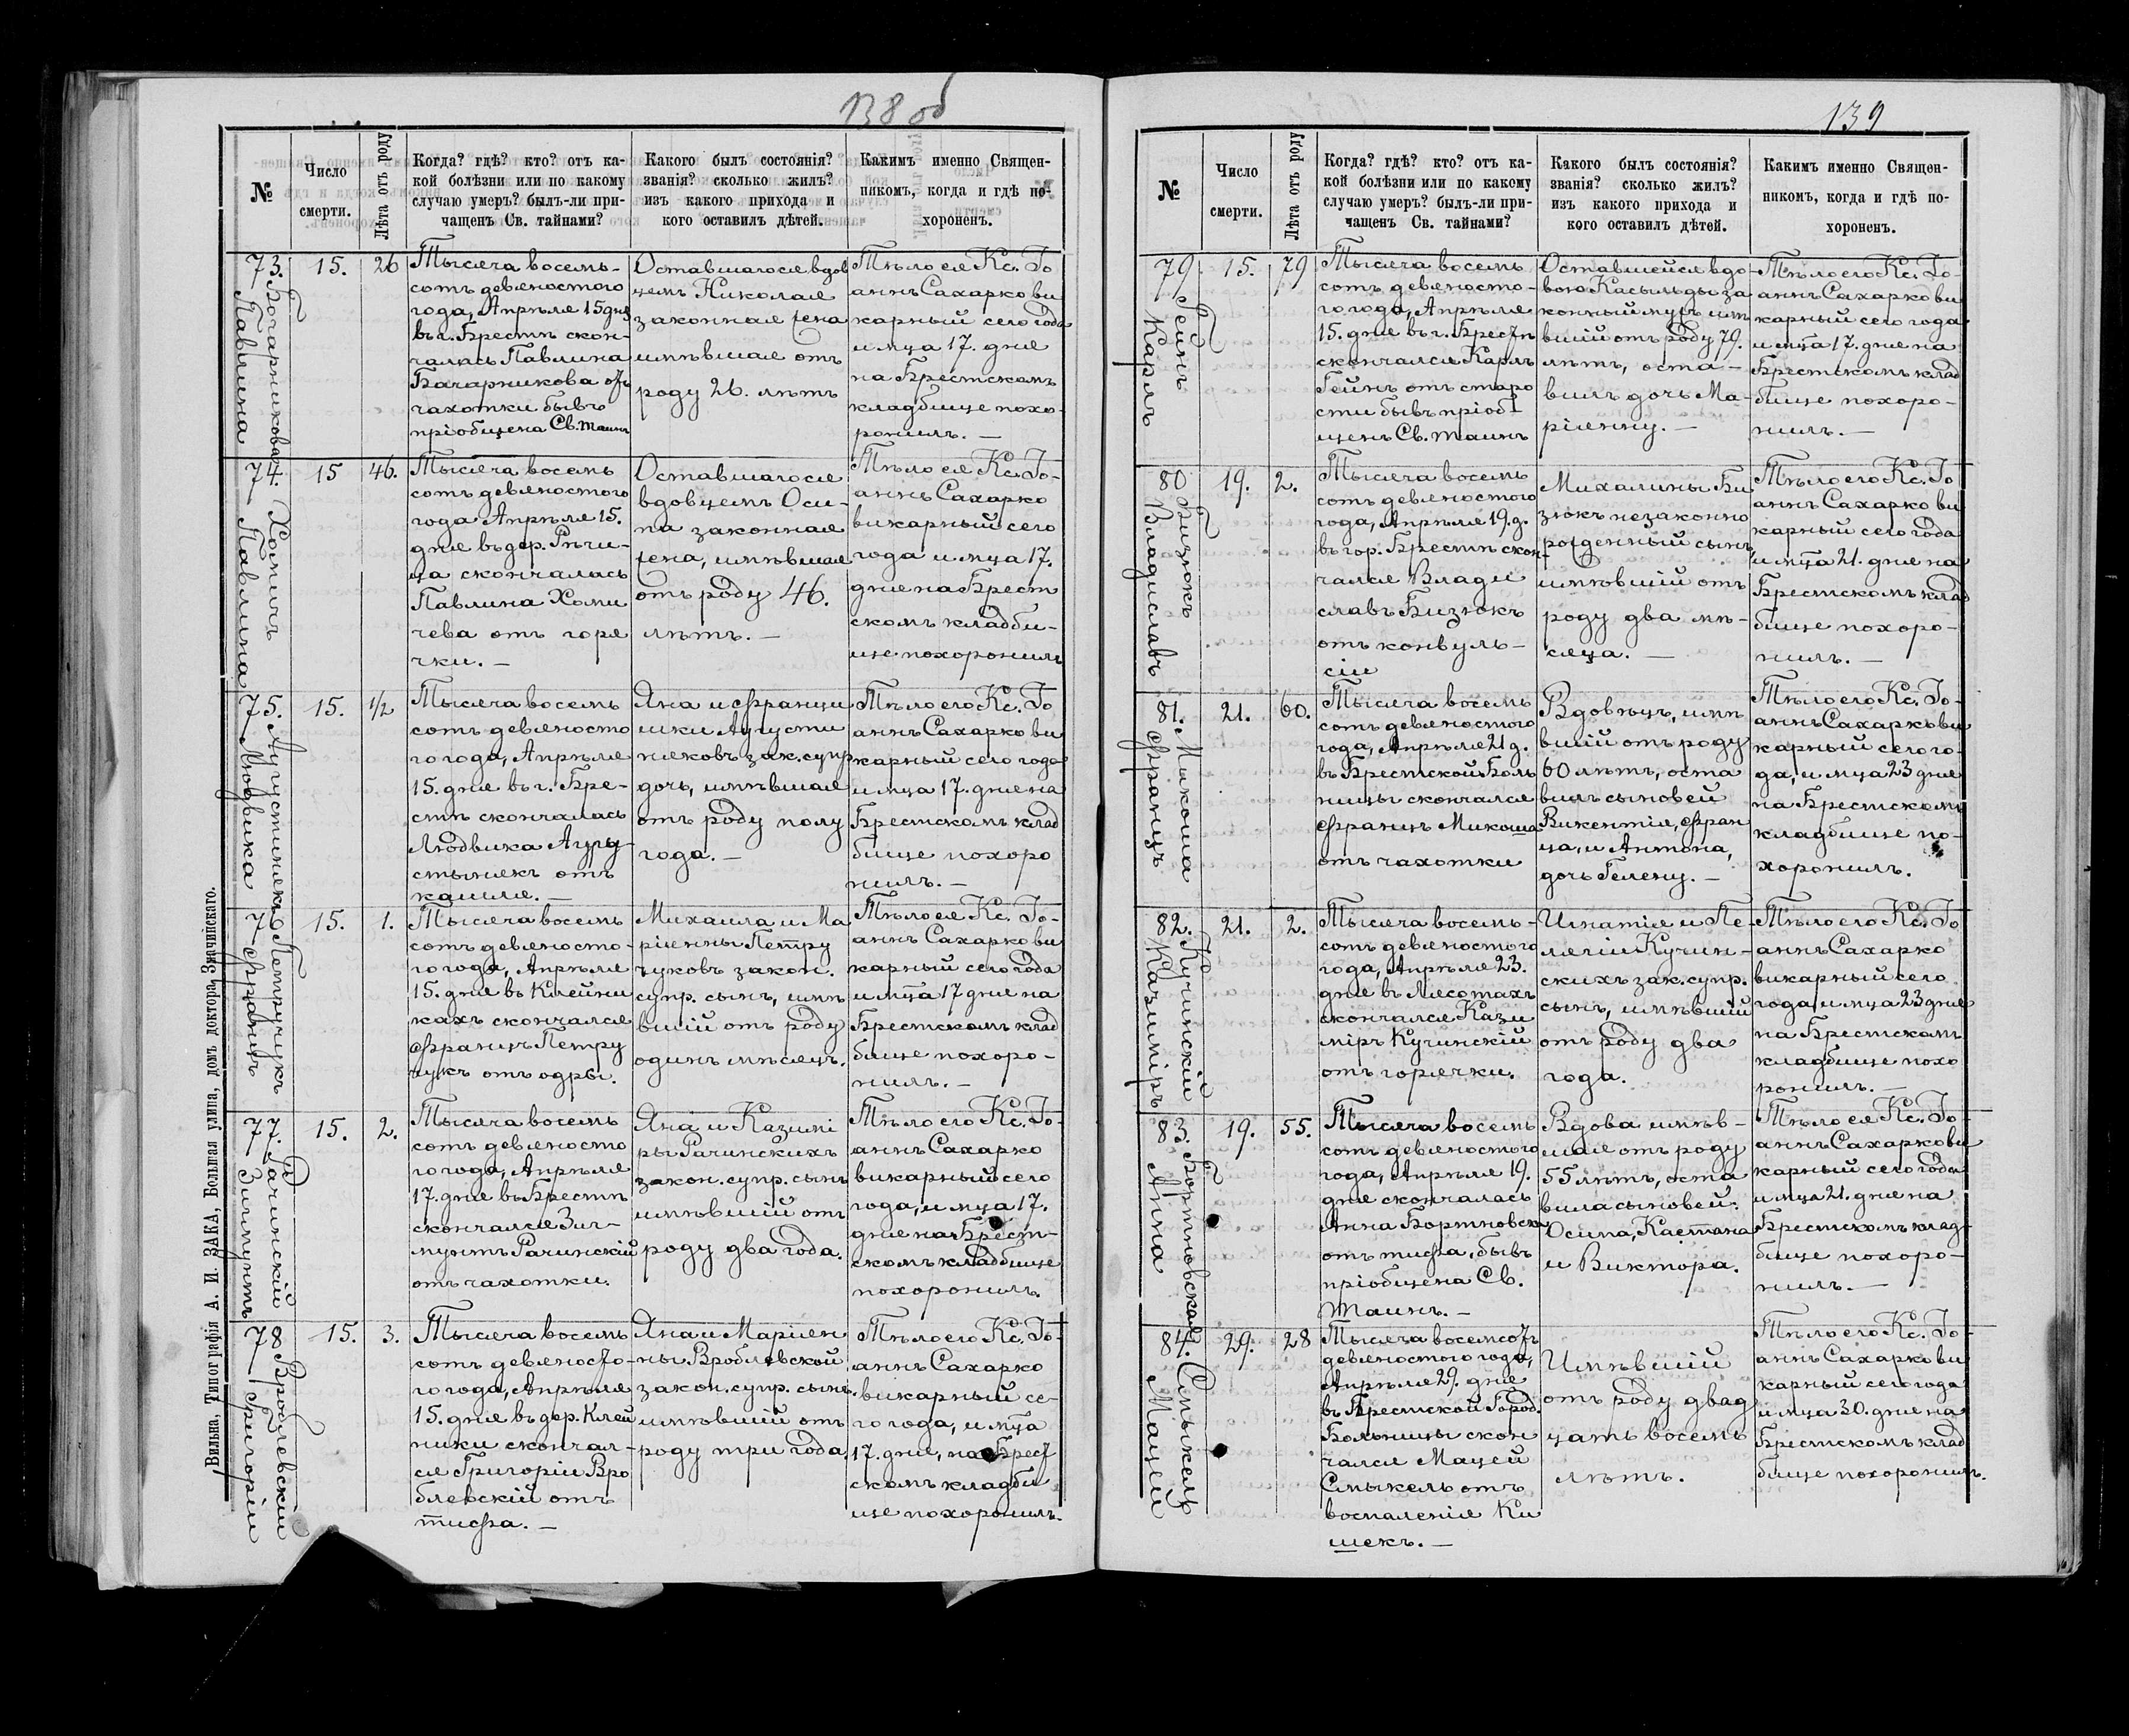 138 об
№
Число
смерти.
Лѣта отъ роду
Когда? гдѣ? кто? отъ ка-
кой болѣзни или по какому
случаю умеръ? былъ-ли при-
чащенъ Св. тайнами?
Какого былъ состоянія?
званія? сколько жилъ?
изъ какого прихода и
кого оставилъ дѣтей.
Какимъ именно Священ-
никомъ, когда и гдѣ по-
хороненъ.
73.
Богарникова
Павлина
15.
26
Тысяча восемь-
сотъ девяностого
года, Апрѣля 15 дня
въ г. Брестѣ скон-
чалась Павлина
Бачарникова отъ
чахотки бывъ
пріобщена Св. таинъ
Оставшагося вдов
цемъ Николая
законная жена
имѣвшая отъ
роду 26. лѣтъ
Тѣло ея Кс. Іо
аннъ Сахарко ви
карный сего года
и мца 17. дня
на Брестскомъ
кладбище похо-
ронилъ. —
74.
Хомичъ
Павлина
15
46.
Тысяча восемь
сотъ девяностого
года Апрѣля 15.
дня въ дер. Рѣчи-
ца скончалась
Павлина Хоми
чева отъ горя
чки. —
Оставшагося
вдовцемъ Оси-
па законная
жена, имѣвшая
отъ роду 46.
лѣтъ. —
Тѣло ея Кс. Іо-
аннъ Сахарко
викарный сего
года и мца 17.
дня на Брест
скомъ кладби-
ще похоронилъ
75.
Августинякъ
Людвика
15.
1/2
Тысяча восемь
сотъ девяносто
го года, Апрѣля
15. дня въ г. Бре-
стѣ скончалась
Людвика Авгу-
стынякъ отъ
кашля. —
Яна и Францы
шки Августи
няковъ зак. супр
дочь, имѣвшая
отъ роду полу
года. —
Тѣло его Кс. Іо
аннъ Сахарко ви
карный сего года
и мца 17. дня на
Брестскомъ клад
бище похоро
нилъ. —
76
Петручукъ
Францъ
15.
1.
Тысяча восемь
сотъ девяносто-
го года, Апрѣля
15. дня въ Клейни
кахъ скончался
Францъ Петру
чукъ отъ одры.
Михаила и Ма
ріянны Петру
чуковъ закон.
супр. сынъ, имѣ
вшій отъ роду
одинъ мѣсяцъ.
Тѣло ея Кс. Іо-
аннъ Сахарко ви
карный сего года
и мца 17 дня на
Брестскомъ клад
бище похоро-
нилъ. —
77.
Рачинскій
Зигмунтъ
15.
2.
Тысяча восемь
сотъ девяносто
го года, Апрѣля
17. дня въ Брестѣ
скончался Зиг-
мунтъ Рачинскій
отъ чахотки.
Яна и Казимі
ры Рачинскихъ
закон. супр. сынъ
имѣвшій отъ
роду два года.
Тѣло его Кс. Іо-
аннъ Сахарко
викарный сего
года, и мца 17.
дня на Брест-
скомъ кладбище
похоронилъ.
78
Вроблевскій
Григорій
15.
3.
Тысяча восемь
сотъ девяносто-
го года, Апрѣля
15. дня въ дер. Клей
ники скончал-
ся Григорій Вро
блевскій отъ
тифа. —
Яна и Маріян
ны Вроблевской
закон. супр. сынъ.
имѣвшій отъ
роду три года.
Тѣло его Кс. Іо-
аннъ Сахарко
викарный се-
го года, и мца
17. дня, на Брест
скомъ кладби
ще похоронилъ.
Вильна, Типографія А. И. ЗАКА, Большая улица, домъ доктора Значийскаго.
139
№
Число
смерти.
Лѣта отъ роду
Когда? гдѣ? кто? отъ ка-
кой болѣзни или по какому
случаю умеръ? былъ-ли при-
чащенъ Св. тайнами?
Какого былъ состоянія?
званія? сколько жилъ?
изъ какого прихода и
кого оставилъ дѣтей.
Какимъ именно Священ-
никомъ, когда и гдѣ по-
хороненъ.
79
Гейнъ
Карлъ
15.
79
Тысяча восемь
сотъ девяносто-
го года, Апрѣля
15. дня въ г. Брестѣ
скончался Карлъ
Гейнъ отъ старо
сти бывъ пріоб-
щенъ Св. таинъ
Оставшейся вдо
вою Касыльды за
конный мужъ имѣ
вшій отъ роду 79.
лѣтъ, оста-
вилъ дочь Ма-
ріянну. —
Тѣло его Кс. Іо-
аннъ Сахарко ви
карный сего года
и мца 17. дня на
Брестскомъ клад
бище похоро-
нилъ. —
80
Бизюкъ
Владиславъ
19.
2.
Тысяча восемь
сотъ девяностого
года, Апрѣля 19. д.
въ гор. Брестѣ скон-
чался Влади
славъ Бизюкъ
отъ конвуль-
сіи
Михалины Би
зюкъ незаконно
рожденный сынъ,
имѣвшій отъ
роду два мѣ-
сяца. —
Тѣло его Кс. Іо
аннъ Сахарко ви
карный сего года
и мца 21. дня на
Брестскомъ клад
бище похоро-
нилъ. —
81.
Микоша
Францъ
21.
60.
Тысяча восемь
сотъ девяностого
года, Апрѣля 21 д.
въ Брестской Боль
ницы скончался
Францъ Микоша
отъ чахотки
Вдовецъ, имѣ
вшій отъ роду
60 лѣтъ, оста
вилъ сыновей
Викентія, Фран
ца, и Антона,
дочь Гелену. —
Тѣло его Кс. Іо-
аннъ Сахарко ви
карный сего го-
да, и мца 23 дня
на Брестскомъ
кладбище по-
хоронилъ.
82.
Кучинскій
Казиміръ
21.
2.
Тысяча восемь-
сотъ девяностого
года, Апрѣля 23.
дня въ Лясотахъ
скончался Кази
міръ Кучинскій
отъ горячки.
Игнатія и Пе-
лягіи Кучин-
скихъ зак. супр.
сынъ, имѣвшій
отъ роду два
года.
Тѣло его Кс. Іо
аннъ Сахарко
викарный сего
года и мца 23 дня
на Брестскомъ
кладбище похо
ронилъ. —
83.
Бортновская
Анна
19.
55.
Тысяча восемь
сотъ девяностого
года, Апрѣля 19.
дня скончалась
Анна Бортновска
отъ тифа, бывъ
пріобщена Св.
Таинъ. —
Вдова имѣв-
шая отъ роду
55 лѣтъ, оста
вила сыновей:
Осипа, Каетана
и Виктора.
Тѣло ея Кс. Іо-
аннъ Сахарко ви
карный сего года
и мца 21. дня на
Брестскомъ клад-
бище похоро-
нилъ. —
84.
Смыкель
Мацей
29.
28
Тысяча восемсотъ
девяностого года,
Апрѣля 29. дня
въ Брестской Город.
Больницы скон
чался Мацей
Смыкель отъ
воспаленія Ки
шекъ. —
Имѣвшій
отъ роду двад
цать восемь
лѣтъ.
Тѣло его Кс. Іо-
аннъ Сахарко ви
карный сего года
и мца 30. дня на
Брестскомъ клад
бище похоронилъ.